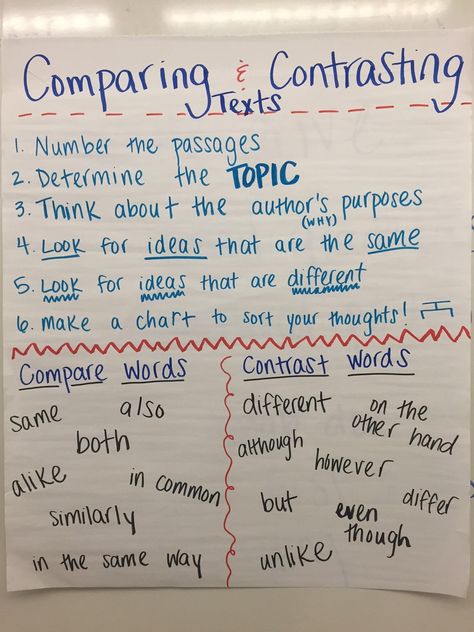 Comparing & Contrasting
Texts
1. Number the passages
2. Determine the TOPIC
3. Think about the author's purposes
(WHY)
4. Look for ideas that are the same
5. Look for ideas that are different
6. Make a chart to sort your thoughts!
Compare Words
same
also
both
alike
in common
similarly
in the same way
Contrast Words
different
on the
other hand
although
however
but
even
though
differ
unlike